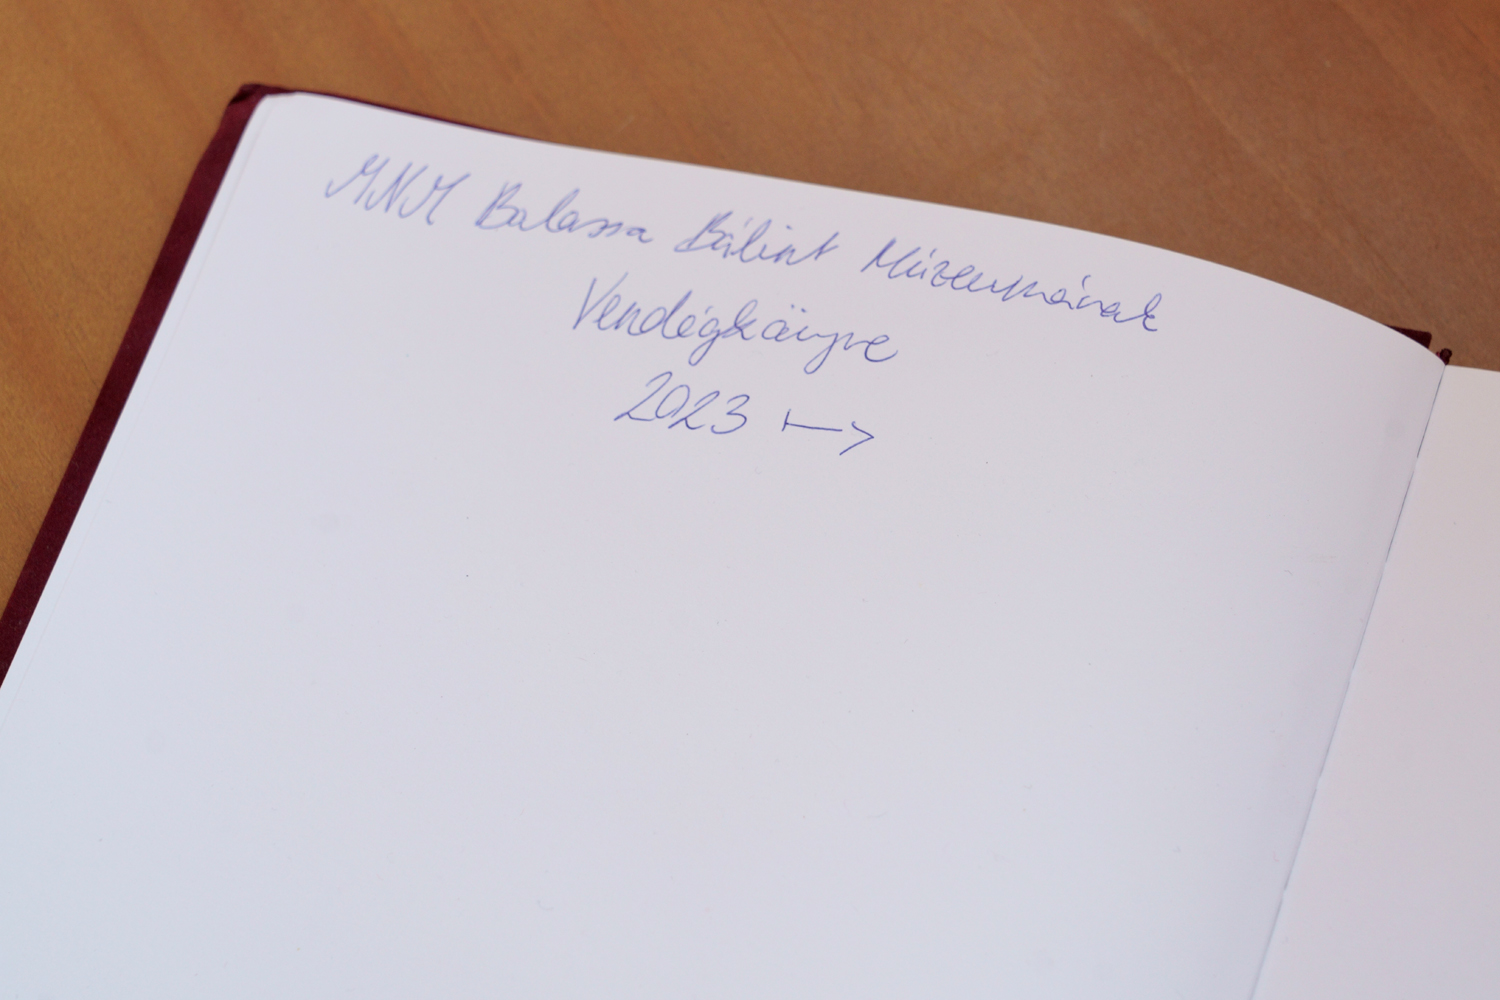 MNM Balassa Bálint Múzeumának
Vendégkönyve
2023 ⟼